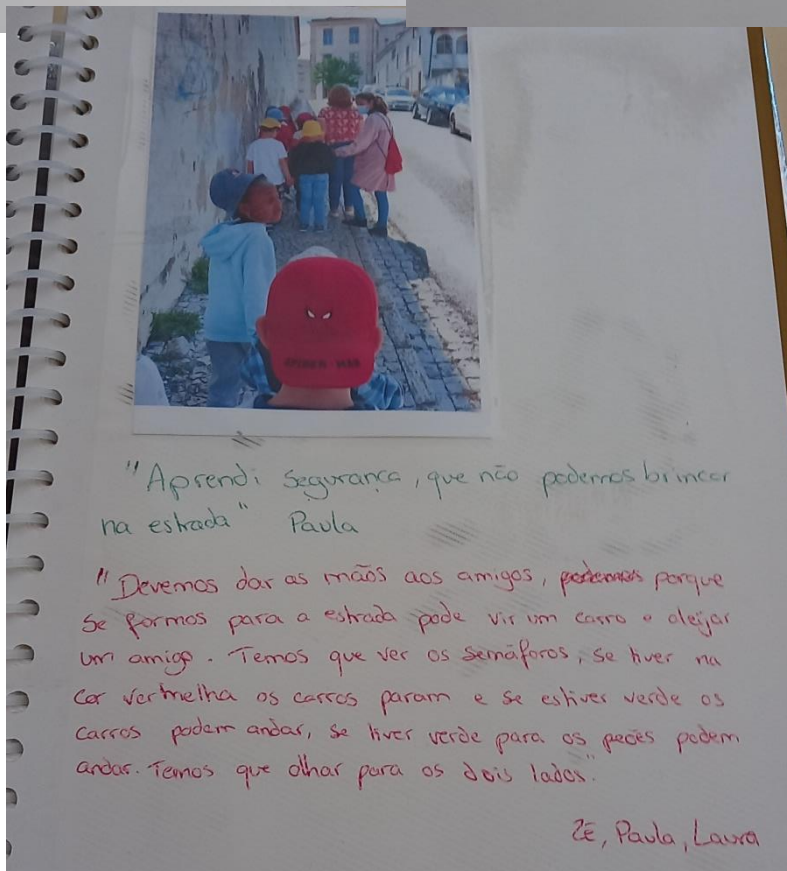 SPIDER-MAN
"Aprendi segurança, que não podemos brincar
na estrada" Paula
"Devemos dar as mãos aos amigos, podemos porque
se formos para a estrada pode vir um carro e aleijar
um amigo. Temos que ver os semáforos, se tiver na
cor vermelha os carros param e se estiver verde os
carros podem andar, se tiver verde para os peões podem
andar. Temos que olhar para os dois lados."
Zé, Paula, Laura